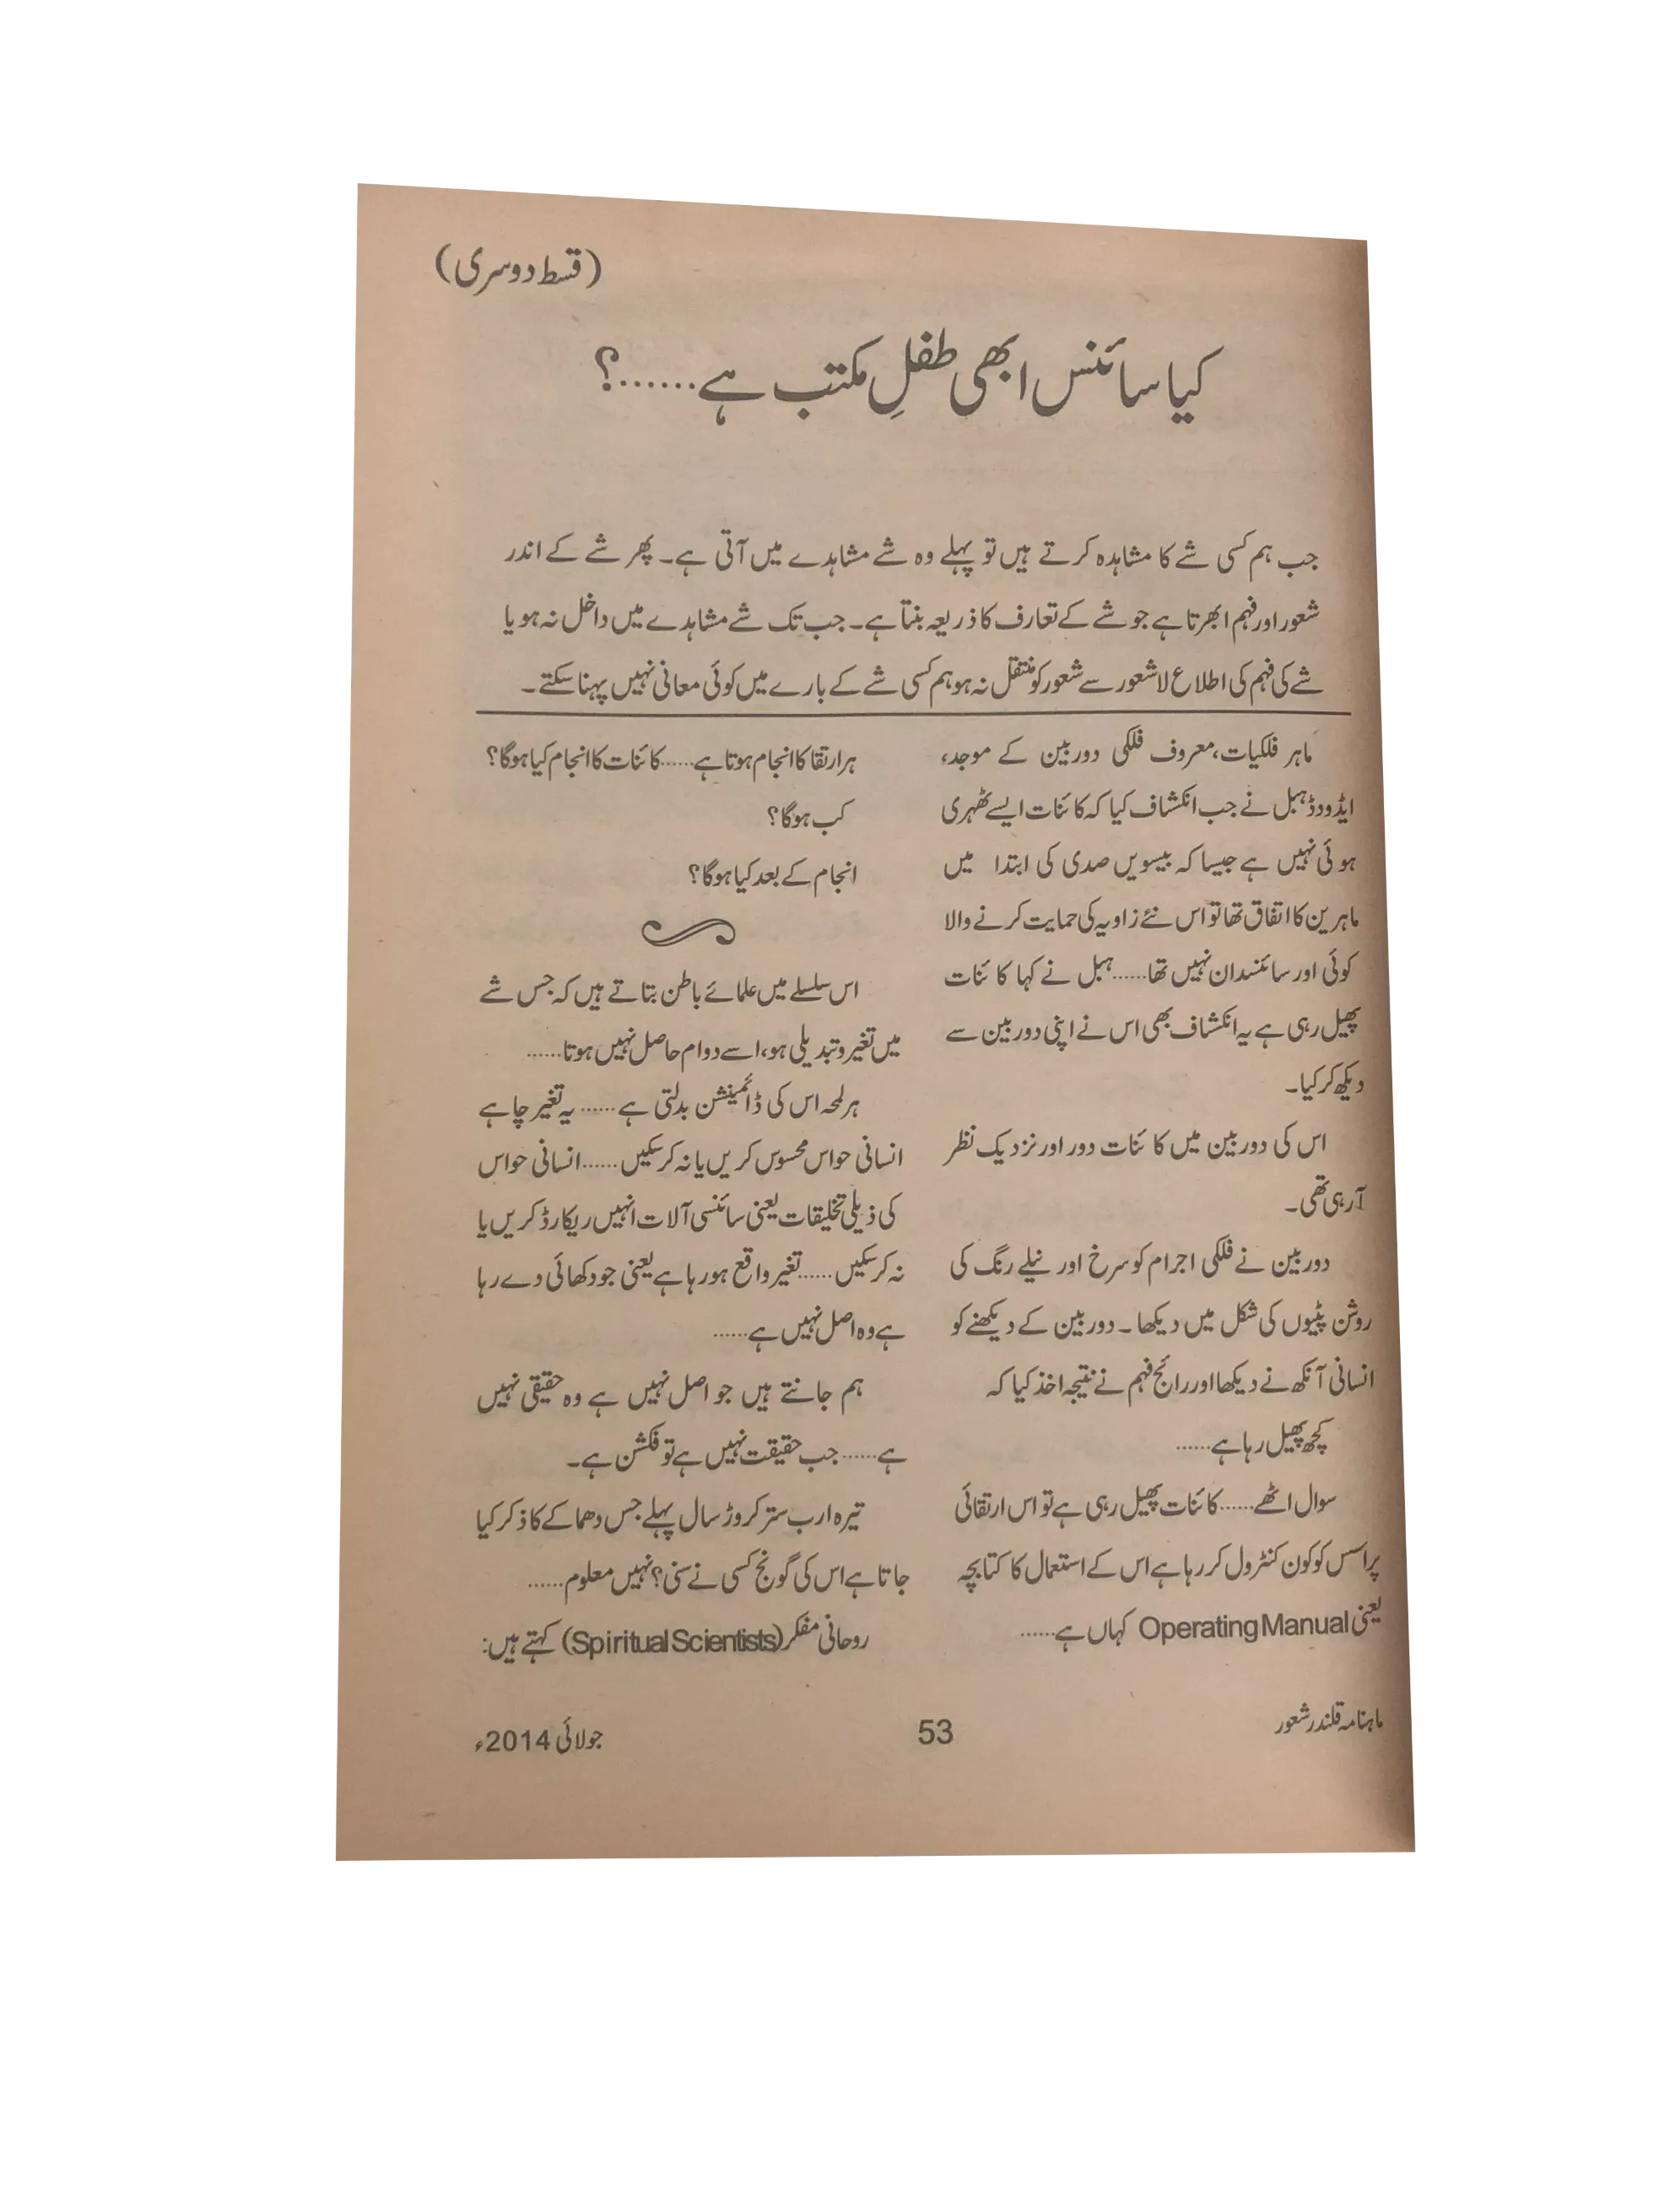 (قسط دوسری)
کیا سائنس ابھی طفلِ مکتب ہے......؟
جب ہم کسی شے کا مشاہدہ کرتے ہیں تو پہلے وہ شے مشاہدے میں آتی ہے۔ پھر شے کے اندر
شعور اور فہم ابھرتا ہے جو شے کے تعارف کا ذریعہ بنتا ہے۔ جب تک شے مشاہدے میں داخل نہ ہو یا
شے کی فہم کی اطلاع لاشعور سے شعور کو منتقل نہ ہو ہم کسی شے کے بارے میں کوئی معانی نہیں پہنا سکتے۔
ماہر فلکیات، معروف فلکی دوربین کے موجد،
ایڈووڈ ہبل نے جب انکشاف کیا کہ کائنات ایسے ٹھہری
ہوئی نہیں ہے جیسا کہ بیسویں صدی کی ابتدا میں
ماہرین کا اتفاق تھا تو اس نئے زاویہ کی حمایت کرنے والا
کوئی اور سائنسدان نہیں تھا......ہبل نے کہا کائنات
پھیل رہی ہے یہ انکشاف بھی اس نے اپنی دوربین سے
دیکھ کر کیا۔
اس کی دوربین میں کائنات دور اور نزدیک نظر
آرہی تھی۔
دوربین نے فلکی اجرام کو سرخ اور نیلے رنگ کی
روشن پٹیوں کی شکل میں دیکھا۔ دوربین کے دیکھنے کو
انسانی آنکھ نے دیکھا اور رائج فہم نے نتیجہ اخذ کیا کہ
کچھ پھیل رہا ہے......
سوال اٹھے......کائنات پھیل رہی ہے تو اس ارتقائی
پراسس کو کون کنٹرول کر رہا ہے اس کے استعمال کا کتابچہ
یعنی Operating Manual کہاں ہے......
ہر ارتقا کا انجام ہوتا ہے......کائنات کا انجام کیا ہوگا؟
کب ہوگا؟
انجام کے بعد کیا ہوگا؟
اس سلسلے میں علمائے باطن بتاتے ہیں کہ جس شے
میں تغیر و تبدیلی ہو، اسے دوام حاصل نہیں ہوتا......
ہر لمحہ اس کی ڈائمینشن بدلتی ہے......یہ تغیر چاہے
انسانی حواس محسوس کریں یا نہ کرسکیں......انسانی حواس
کی ذیلی تخلیقات یعنی سائنسی آلات انہیں ریکارڈ کریں یا
نہ کرسکیں......تغیر واقع ہورہا ہے یعنی جو دکھائی دے رہا
ہے وہ اصل نہیں ہے......
ہم جانتے ہیں جو اصل نہیں ہے وہ حقیقی نہیں
ہے......جب حقیقت نہیں ہے تو فکشن ہے۔
تیرہ ارب ستر کروڑ سال پہلے جس دھماکے کا ذکر کیا
جاتا ہے اس کی گونج کسی نے سنی؟ نہیں معلوم......
روحانی مفکر (Spiritual Scientists) کہتے ہیں:
ماہنامہ قلندر شعور
53
جولائی 2014ء